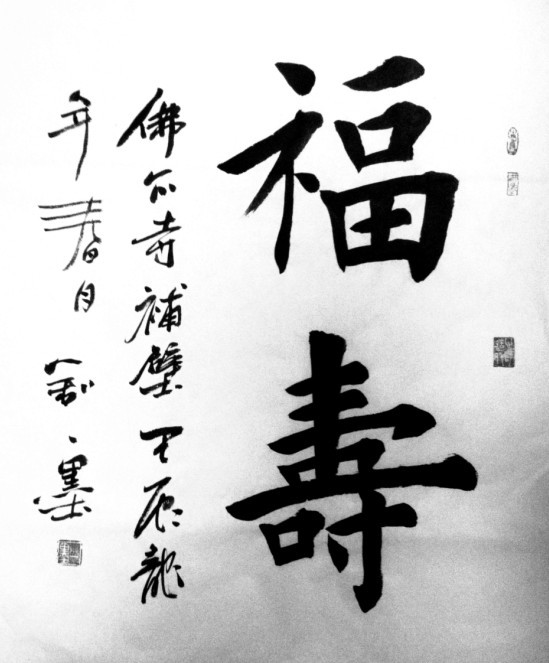 福壽
佛寺補壁壬辰龍
年春月墨